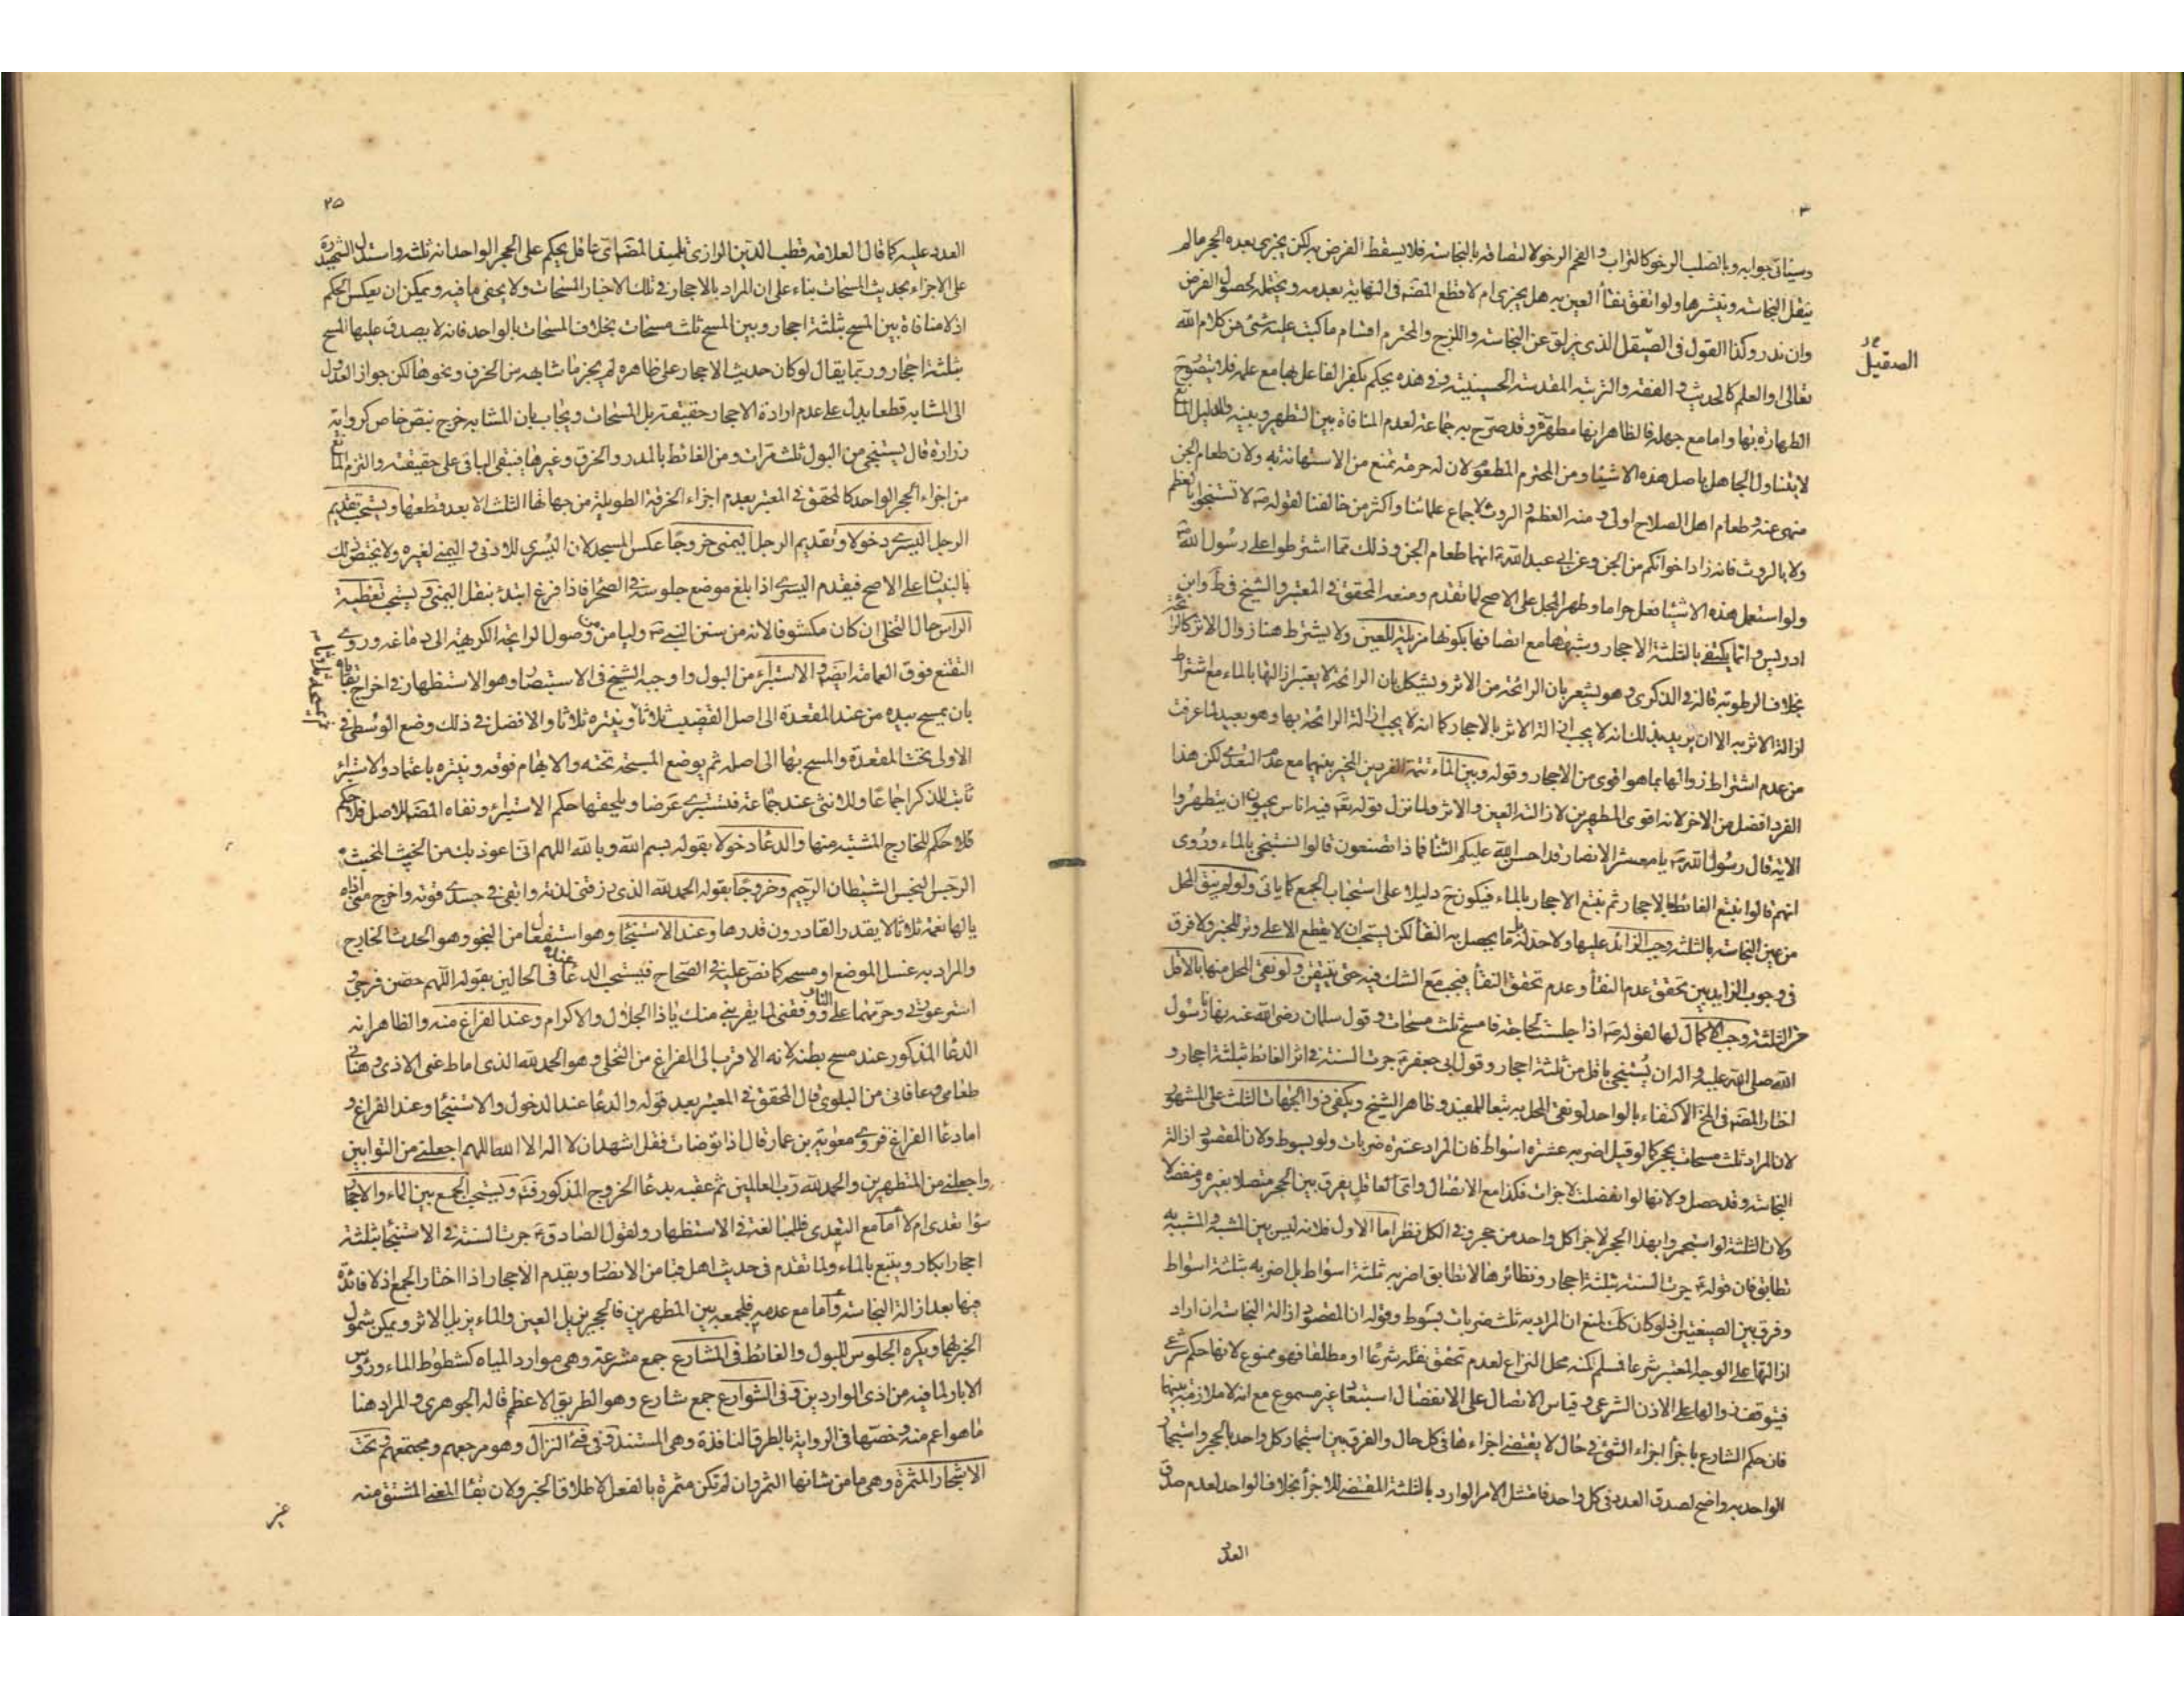 وسياتى جوابه وبالصلب الرخو كالتراب والفحم الرخو لالتصاقه بالنجاسة فلا يسقط الفرض به لكن يجزى بعده الحجر ما لم
ينقل النجاسة وينشرها ولو اتفق نقاء العين به هل يجزى ام لا قطع المصنف فى النهاية بعدمه ويحتمله لحصول الغرض
وان ندر وكذا القول فى الصيقل الذى يزلق عن النجاسة واللزج والمحترم اقسام ما كتب عليه شئ من كلام الله
الصقيل
تعالى او العلم كالحديث والفقه والتربة المقدسة الحسينية وفى هذه يحكم بكفر الفاعل بها مع علمه فلا يتصور ح
الطهارة بها واما مع جهله فالظاهر انها مطهرة وقد صرح به جماعة لعدم المنافاة بين التطهر وبينه والدليل المانع
لا يتناول الجاهل باصل هذه الاشياء ومن المحترم المطعوم لان له حرمة تمنع من الاستهانة به ولان طعام الجن
منهى عنه وطعام اهل الصلاح اولى ومنه العظم والروث لاجماع علمائنا واكثر من خالفنا لقوله ص لا تستنجوا بالعظم
ولا بالروث فانه زاد اخوانكم من الجن وعن ابى عبد الله ع انهما طعام الجن وذلك مما اشترطوا على رسول الله ص
ولو استعمل هذه الاشياء فعل حراما وطهر المحل على الاصح لما تقدم ومنعه المحقق فى المعتبر والشيخ فى ط وابن
ادريس وانما يكتفى بالثلثة الاحجار وشبهها مع اتصافها بكونها مزيلة للعين ولا يشترط هنا زوال الاثر كالرائحة
بخلاف الرطوبة قاله فى الذكرى وهو يشعر بان الرائحة من الاثر ويشكل بان الرائحة لا يعتبر ازالتها بالماء مع اشتراط
ازالة الاثر به الا ان يريد بذلك انه لا يجب ازالة الاثر بالاحجار كما انه لا يجب ازالة الرائحة بها وهو بعيد لما عرفت
من عدم اشتراط زوالها بما هو اقوى من الاحجار وقوله وبين الماء تتمة الفردين المخير بينهما مع عدم التعدى لكن هذا
الفرد افضل من الاخر لانه اقوى المطهرين لازالته العين والاثر ولما نزل قوله تع فيه اناس يحبون ان يتطهروا
الاية قال رسول الله ص يا معشر الانصار قد احسن الله عليكم الثناء فماذا تصنعون قالوا نستنجى بالماء وروى
انهم قالوا نتبع الغائط بالاحجار ثم نتبع الاحجار بالماء فيكون ح دليلا على استحباب الجمع كما ياتى ولو لم ينق المحل
من عين النجاسة بالثلثة وجب الزائد عليها ولا حد له بل ما يحصل به النقاء لكن يستحب ان لا يقطع الا على وتر للخبر ولا فرق
فى وجوب الزايد بين تحقق عدم النقاء وعدم تحقق النقاء فيجب مع الشك فيه حتى يتيقن ولو نقى المحل منها بالاقل
من الثلثة وجب الاكمال لها لقوله ص اذا جلست لحاجة فامسح ثلث مسحات وقول سلمان رضى الله عنه نهانا رسول
الله صلى الله عليه واله ان يستنجى باقل من ثلثة احجار وقول ابى جعفر ع جرت السنة فى اثر الغائط بثلثة احجار و
اختار المصنف فى المخ الاكتفاء بالواحد لو نقى المحل به تبعا للمفيد وظاهر الشيخ ويكفى ذو الجهات الثلث على المشهور
لان المراد ثلث مسحات بحجر كما لو قيل اضربه عشرة اسواط فان المراد عشرة ضربات ولو بسوط ولان المقصود ازالة
النجاسة وقد حصل ولانها لو انفصلت لاجزات فكذا مع الاتصال واى عاقل يفرق بين الحجر متصلا بغيره ومنفصلا
ولان الثلثة لو استجمروا بهذا الحجر لاجزا كل واحد من حجر وفى الكل نظر اما الاول فلانه ليس بين المشبه والمشبه به
تطابق فان قوله ع جرت السنة بثلثة احجار ونظائرها لا تطابق اضربه ثلثة اسواط بل اضربه بثلثة اسواط
وفرق بين الصيغتين اذ لو كان كك لمنع ان المراد به ثلث ضربات بسوط وقوله ان المقصود ازالة النجاسة ان اراد
ازالتها على الوجه المعتبر شرعا فسلم لكنه محل النزاع لعدم تحقق نقله شرعا او مطلقا فهو ممنوع لانها حكم شرعى
فيتوقف زوالها على الاذن الشرعى وقياس الاتصال على الانفصال استبعادا غير مسموع مع انه لا ملازمة بينهما
فان حكم الشارع باجزاء اجزاء الشئ فى حال لا يقتضى اجزاءها فى كل حال والفرق بين استجمار كل واحد بالحجر واستجمار
الواحد به واضح لصدق العدد فى كل واحد فامتثل الامر الوارد بالثلثة المقتضى للاجزاء بخلاف الواحد لعدم صدق
العدد
٢٥
العدد عليه كما قال العلامة قطب الدين الرازى تلميذ المصنف اى عاقل يحكم على الحجر الواحد انه ثلثة واستدل الشهيد ره
على الاجزاء بحديث المسحات بناء على ان المراد بالاحجار فى تلك الاخبار المسحات ولا يخفى ما فيه ويمكن ان يعكس الحكم
اذ لا منافاة بين المسح بثلثة احجار وبين المسح ثلث مسحات بخلاف المسحات بالواحد فانه لا يصدق عليها المسح
بثلثة احجار وربما يقال لو كان حديث الاحجار على ظاهره لم يجز ما شابهه من الخزف ونحوها لكن جواز العدول
الى المشابه قطعا يدل على عدم ارادة الاحجار حقيقة بل المسحات ويجاب بان المشابه خرج بنص خاص كرواية
زرارة قال يستنجى من البول ثلث مرات ومن الغائط بالمدر والخرق وغيرها فيبقى الباقى على حقيقته والتزم المانع
من اجزاء الحجر الواحد كالمحقق فى المعتبر بعدم اجزاء الخرقة الطويلة من جهاتها الثلث الا بعد قطعها ويستحب تقديم
الرجل اليسرى دخولا وتقديم الرجل اليمنى خروجا عكس المسجد لان اليسرى للادنى واليمنى لغيره ولا يختص ذلك
بالبنيان على الاصح فيقدم اليسرى اذا بلغ موضع جلوسه فى الصحراء فاذا فرغ ابتدء بنقل اليمنى ويستحب تغطية
الراس حال التخلى ان كان مكشوفا لانه من سنن النبى ص وليامن من وصول الرائحة الكريهة الى دماغه وروى
التقنع فوق العمامة ايضا والاستبراء من البول واوجبه الشيخ فى الاستبصار وهو الاستظهار فى اخراج بقاياه
بان يمسح بيده من عند المقعدة الى اصل القضيب ثلاثا وينتره ثلاثا والافضل فى ذلك وضع الوسطى فى
الاولى تحت المقعدة والمسح بها الى اصله ثم يوضع المسبحة تحته والابهام فوقه وينتره باعتماد والاستبراء
ثابت للذكر اجماعا وللانثى عند جماعة فتستبرى عرضا ويلحقها حكم الاستبراء ونفاه المصنف للاصل فلا حكم
فلا حكم للخارج المشتبه منها والدعاء دخولا بقوله بسم الله وبالله اللهم انى اعوذ بك من الخبيث المخبث
الرجس النجس الشيطان الرجيم وخروجا بقوله الحمد لله الذى رزقنى لذته وابقى فى جسدى قوته واخرج عنى اذاه
يالها نعمة ثلاثا لا يقدر القادرون قدرها وعند الاستنجاء وهو استفعال من النجو وهو الحدث الخارج
والمراد به غسل الموضع او مسحه كما نص عليه فى الصحاح فيستحب الدعاء فى الحالين بقوله اللهم حصن فرجى
استر عورتى وحرمهما على النار ووفقنى لما يقربنى منك يا ذا الجلال والاكرام وعند الفراغ منه والظاهر انه
الدعاء المذكور عند مسح بطنه لانه الاقرب الى الفراغ من التخلى وهو الحمد لله الذى اماط عنى الاذى وهنانى
طعامى وعافانى من البلوى قال المحقق فى المعتبر بعد قوله والدعاء عند الدخول والاستنجاء وعند الفراغ و
اما دعاء الفراغ فروى معوية بن عمار قال اذا توضات فقل اشهد ان لا اله الا الله اللهم اجعلنى من التوابين
واجعلنى من المتطهرين والحمد لله رب العالمين ثم عقبه بدعاء الخروج المذكور فتم ويستحب الجمع بين الماء والاحجار
سواء تعدى ام لا اما مع التعدى فللمبالغة فى الاستظهار ولقول الصادق ع جرت السنة فى الاستنجاء بثلثة
احجار ابكار ويتبع بالماء ولما تقدم فى حديث اهل قبا من الانصار ويقدم الاحجار اذا اختار الجمع اذ لا فائدة
فيها بعد ازالة النجاسة واما مع عدمه فللجمع بين المطهرين فالحجر يزيل العين والماء يزيل الاثر ويمكن شمول
الخبر لهما ويكره الجلوس للبول والغائط فى المشارع جمع مشرعة وهى موارد المياه كشطوط الماء ورؤس
الابار لما فيه من اذى الواردين وفى الشوارع جمع شارع وهو الطريق الاعظم قاله الجوهرى والمراد هنا
ما هو اعم منه وخصها فى الرواية بالطرق النافذة وهى المستند وفى فئ النزال وهو مرجعهم ومجتمعهم وتحت
الاشجار المثمرة وهى ما من شانها الثمر وان لم تكن مثمرة بالفعل لاطلاق الخبر ولان بقاء المعنى المشتق منه
غير